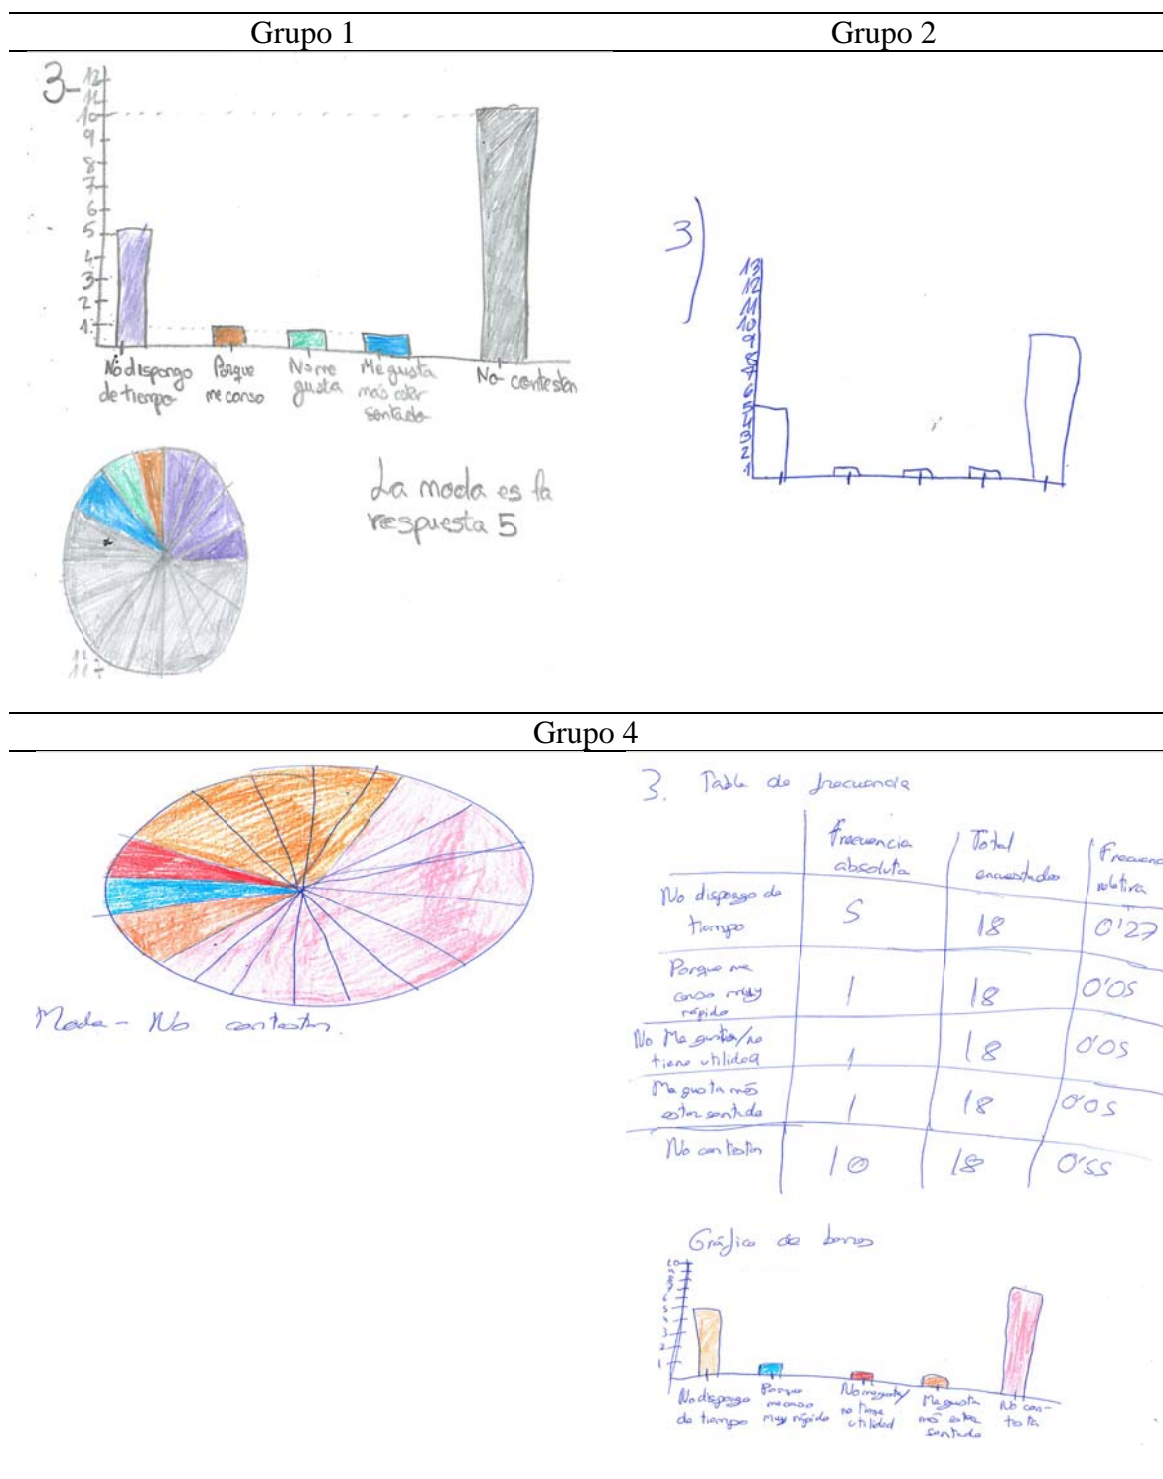 Grupo 1
Grupo 2
3-
12
11
10
9
8
7
6
5
4
3
2
1
No dispongo
de tiempo
Porque
me canso
No me
gusta
Me gusta
más estar
sentado
No contesten
La moda es la
respuesta 5
12
11
3)
13
12
11
10
9
8
7
6
5
4
3
2
1
Grupo 4
Moda - No contestan.
3. Tabla de frecuencia
Frecuencia
absoluta
Total
encuestados
Frecuenc
relativa
No dispongo de
tiempo
5
18
0'27
Porque me
canso muy
rápido
1
18
0'05
No Me gusta/no
tiene utilidad
1
18
0'05
Me gusta más
estar sentado
1
18
0'05
No contestan
10
18
0'55
Gráfico de barras
10
9
8
7
6
5
4
3
2
1
No dispongo
de tiempo
Porque
me canso
muy rápido
No me gusta/
no tiene
utilidad
Me gusta
más estar
sentado
No con-
testa